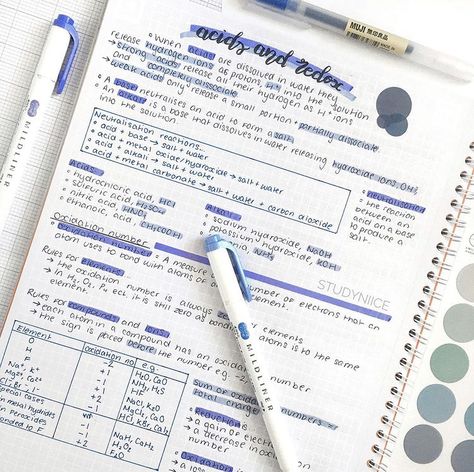 acids and redox
When acids are dissolved in water they
release hydrogen ions as protons, H⁺ into the solution
→ strong acids release all their hydrogen as H⁺ ions
and completely dissociate
→ weak acids only release a small portion + partially dissociate
into the solution.
A base neutralises an acid to form a salt.
An alkali is a base that dissolves in water releasing hydroxide ions, OH⁻
Neutralisation reactions...
acid + base → salt + water
acid + metal oxide/hydroxide → salt + water
acid + alkali → salt + water
acid + metal carbonate → salt + water + carbon dioxide
Neutralisation
the reaction
between an
acid and
on a base
to produce a
salt.
Acids
hydrochloric acid, HCl
sulfuric acid, H₂SO₄
nitric acid, HNO₃
ethanoic, acid, CH₃COOH
Alkali
sodium hydroxide, NaOH
potassium hydroxide, KOH
NH₃
Oxidation number
Oxidation number : A measure of number of electrons that an
atom uses to bond with atoms of element.
STUDYNIICE
Rules for elements...
→ the oxidation number is always zero elements
→ In H₂, O₂, it is still zero as atoms is to the same
element.
Rules for compounds and ions...
→ each atom in a compound has an oxidation
→ the sign is placed before the number e.g. -2, number
Element oxidation no. e.g.
O -2 H₂O, CaO
H +1 NH₃, H₂S
F -1 HF
Na⁺, K⁺ +1 NaCl, K₂O
Mg²⁺, Ca²⁺ +2 MgCl₂, CaO
Cl⁻ Br⁻ I⁻ -1 HCl, KBr
special cases
in metal hydrides NaH, CaH₂
in peroxides H₂O₂
bonded to F +2 F₂O
Sum of oxidation
total charge
Reduction
→ a gain of electrons
→ a decrease in oxidation
number
Oxidation
MILDLINER
MILDLINER
MUJI 無印良品